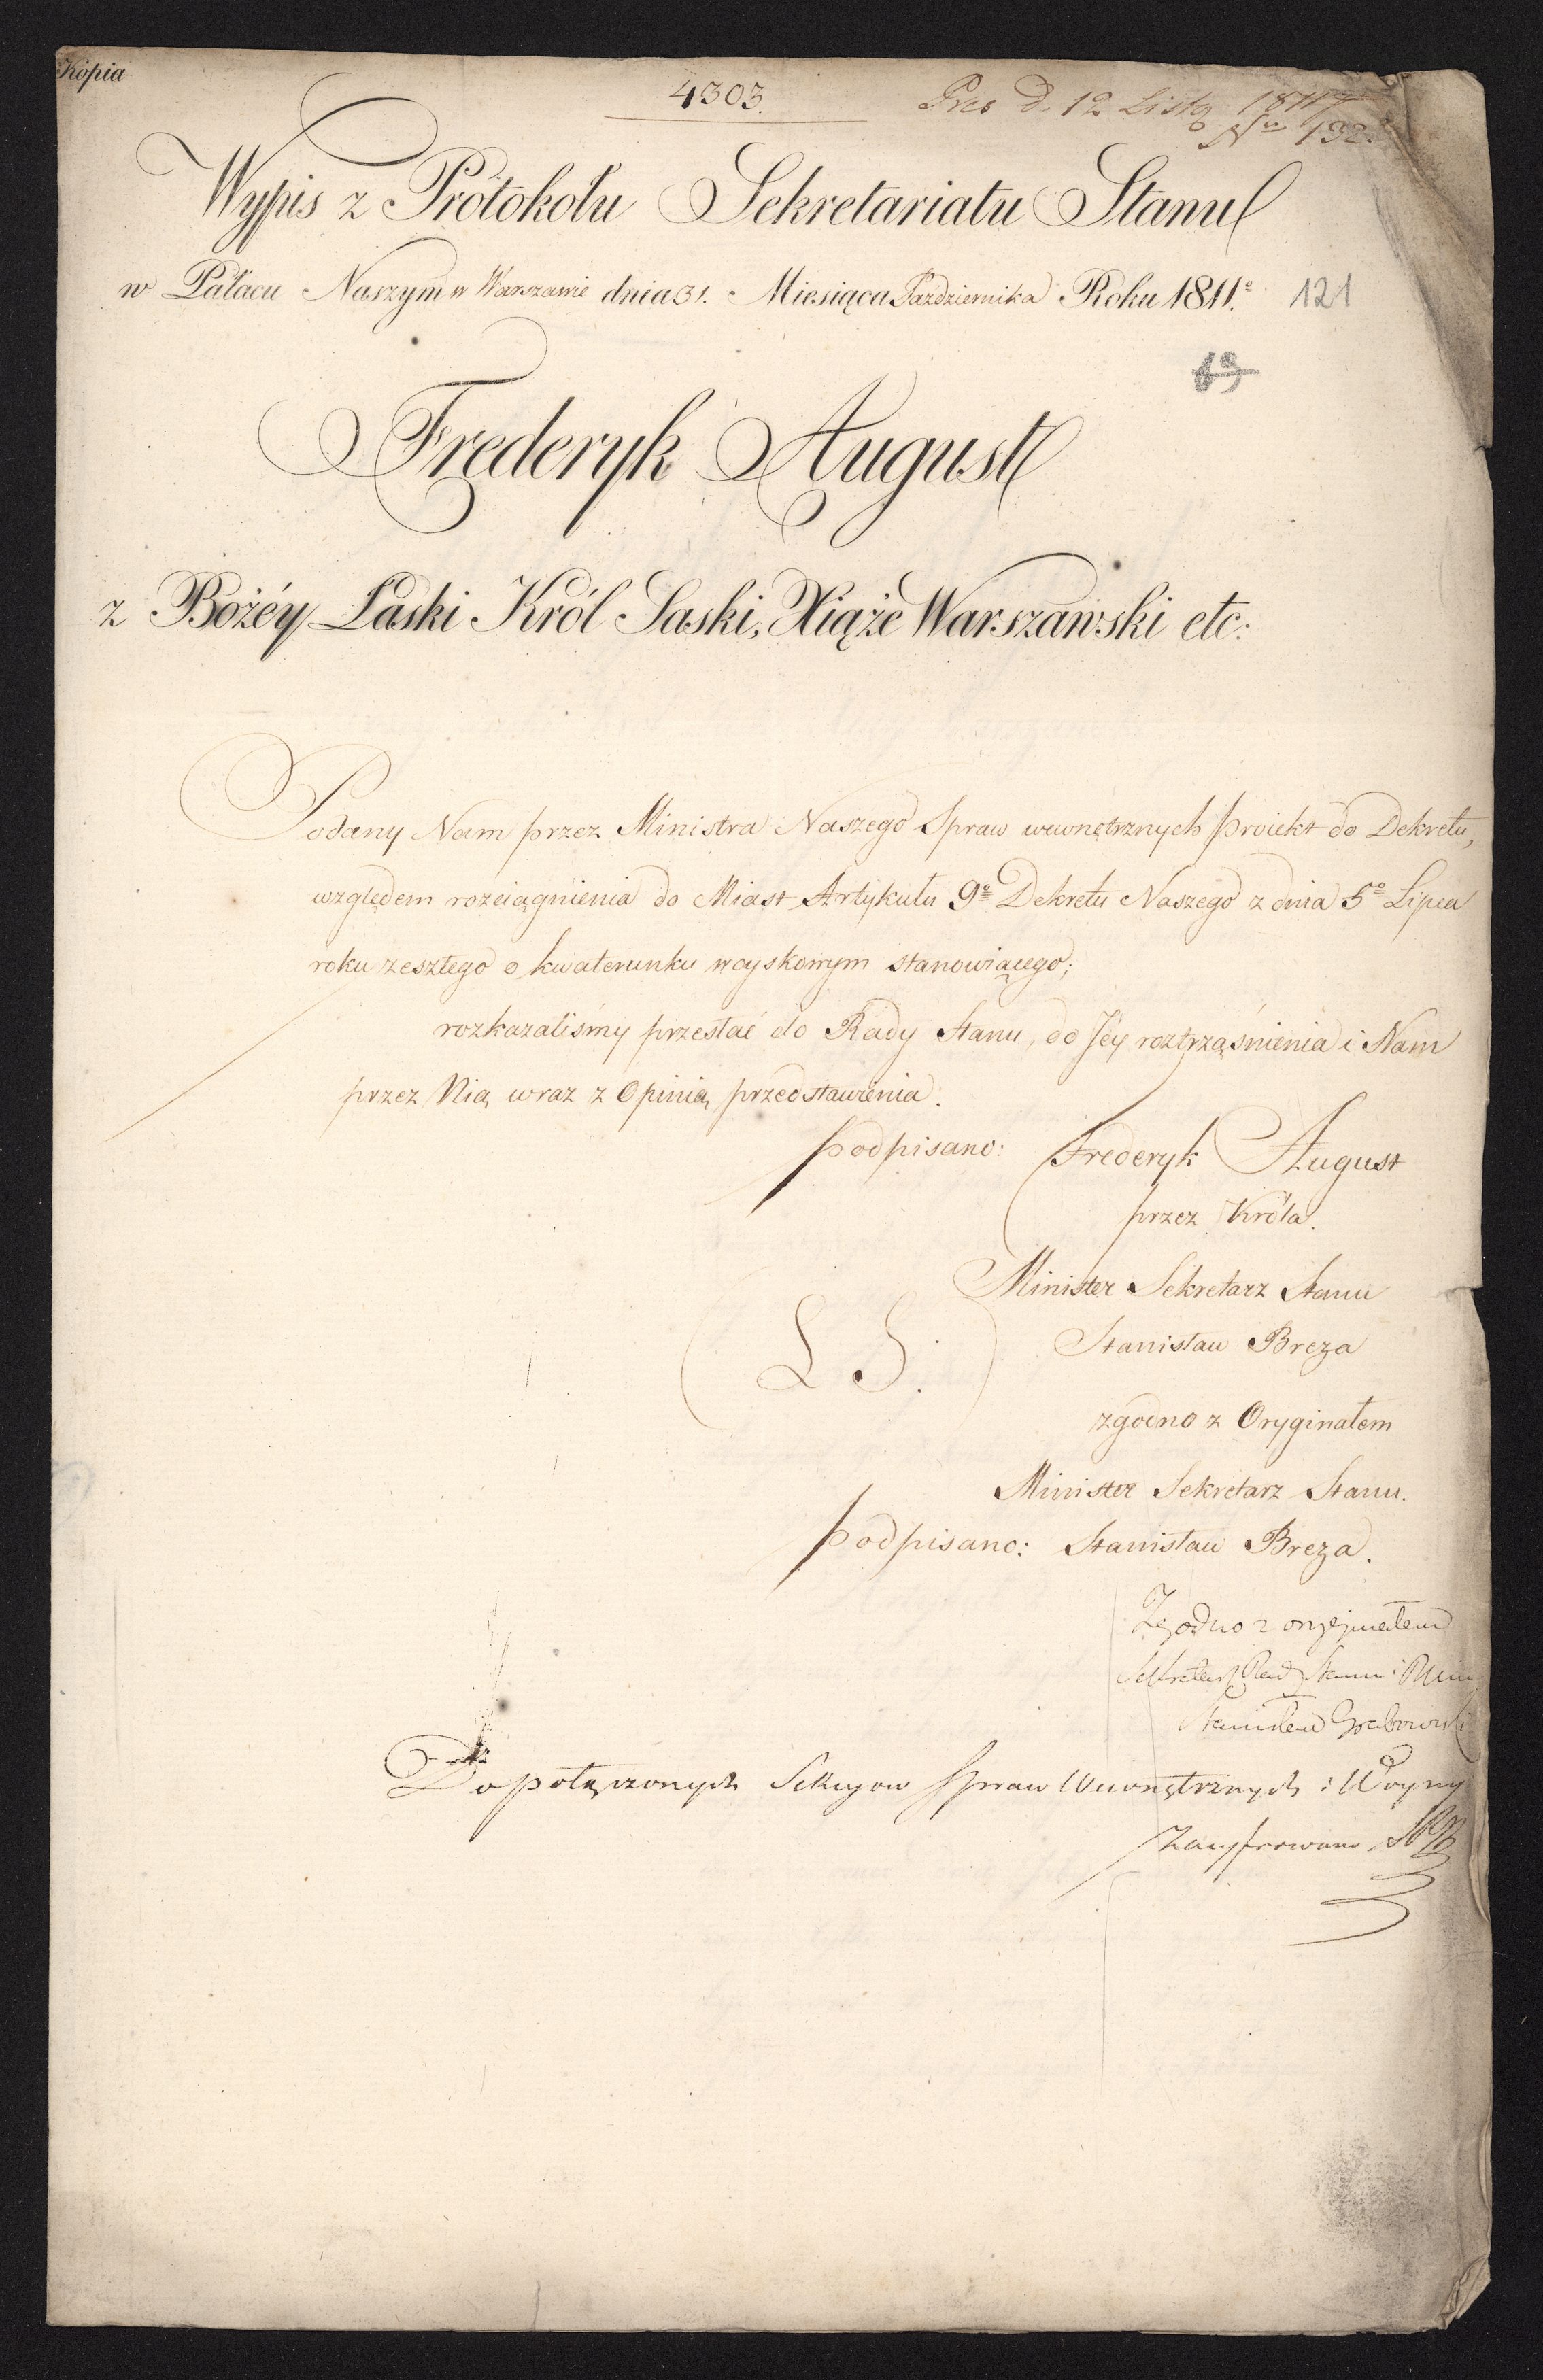 Kopia
4303.
Pres d. 12 Listo 1811
Nro 132.
Wypis z Protokołu Sekretariatu Stanu
w Pałacu Naszym w Warszawie dnia 31. Miesiąca Pazdziernika Roku 1811.o 121
69
Frederyk August
z Bożéy Łaski Król Saski, Xiąże Warszawski etc:
Podany Nam przez Ministra Naszego Spraw wewnętrznych proiekt do Dekretu,
względem rozciągnienia do Miast Artykułu 9o Dekretu Naszego z dnia 5o Lipca
roku zeszłego o kwaterunku woyskowym stanowiącego;
rozkazaliśmy przesłać do Rady Stanu, do Jéy roztrząśnienia i Nam
przez Nią wraz z Opinią przedstawienia.
podpisano: Frederyk August
przez Króla.
Minister Sekretarz Stanu
(L S.) Stanisław Breza
zgodno z Oryginałem
Minister Sekretarz Stanu.
podpisano: Stanisław Breza.
Zgodno z oryginałem
Sekretarz Rady Stanu i Min
Stanisław Grabowski
Do połączonych Sekcyow Spraw Wewnętrznych i Woyny
zacyfrowano